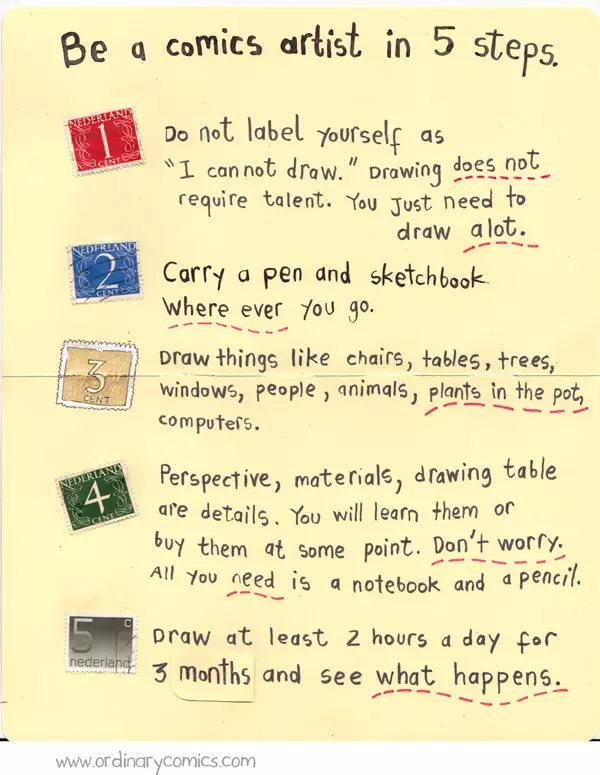 Be a comics artist in 5 steps.
NEDERLAND
1
CENT
Do not label yourself as
"I cannot draw." Drawing does not
require talent. You just need to
draw alot.
NEDERLAND
2
CENT
Carry a pen and sketchbook
Where ever you go.
3
CENT
Draw things like chairs, tables, trees,
windows, people, animals, plants in the pot,
computers.
NEDERLAND
4
CENT
Perspective, materials, drawing table
are details. You will learn them or
buy them at some point. Don't worry.
All you need is a notebook and a pencil.
5 c
nederland
Draw at least 2 hours a day for
3 months and see what happens.
www.ordinarycomics.com